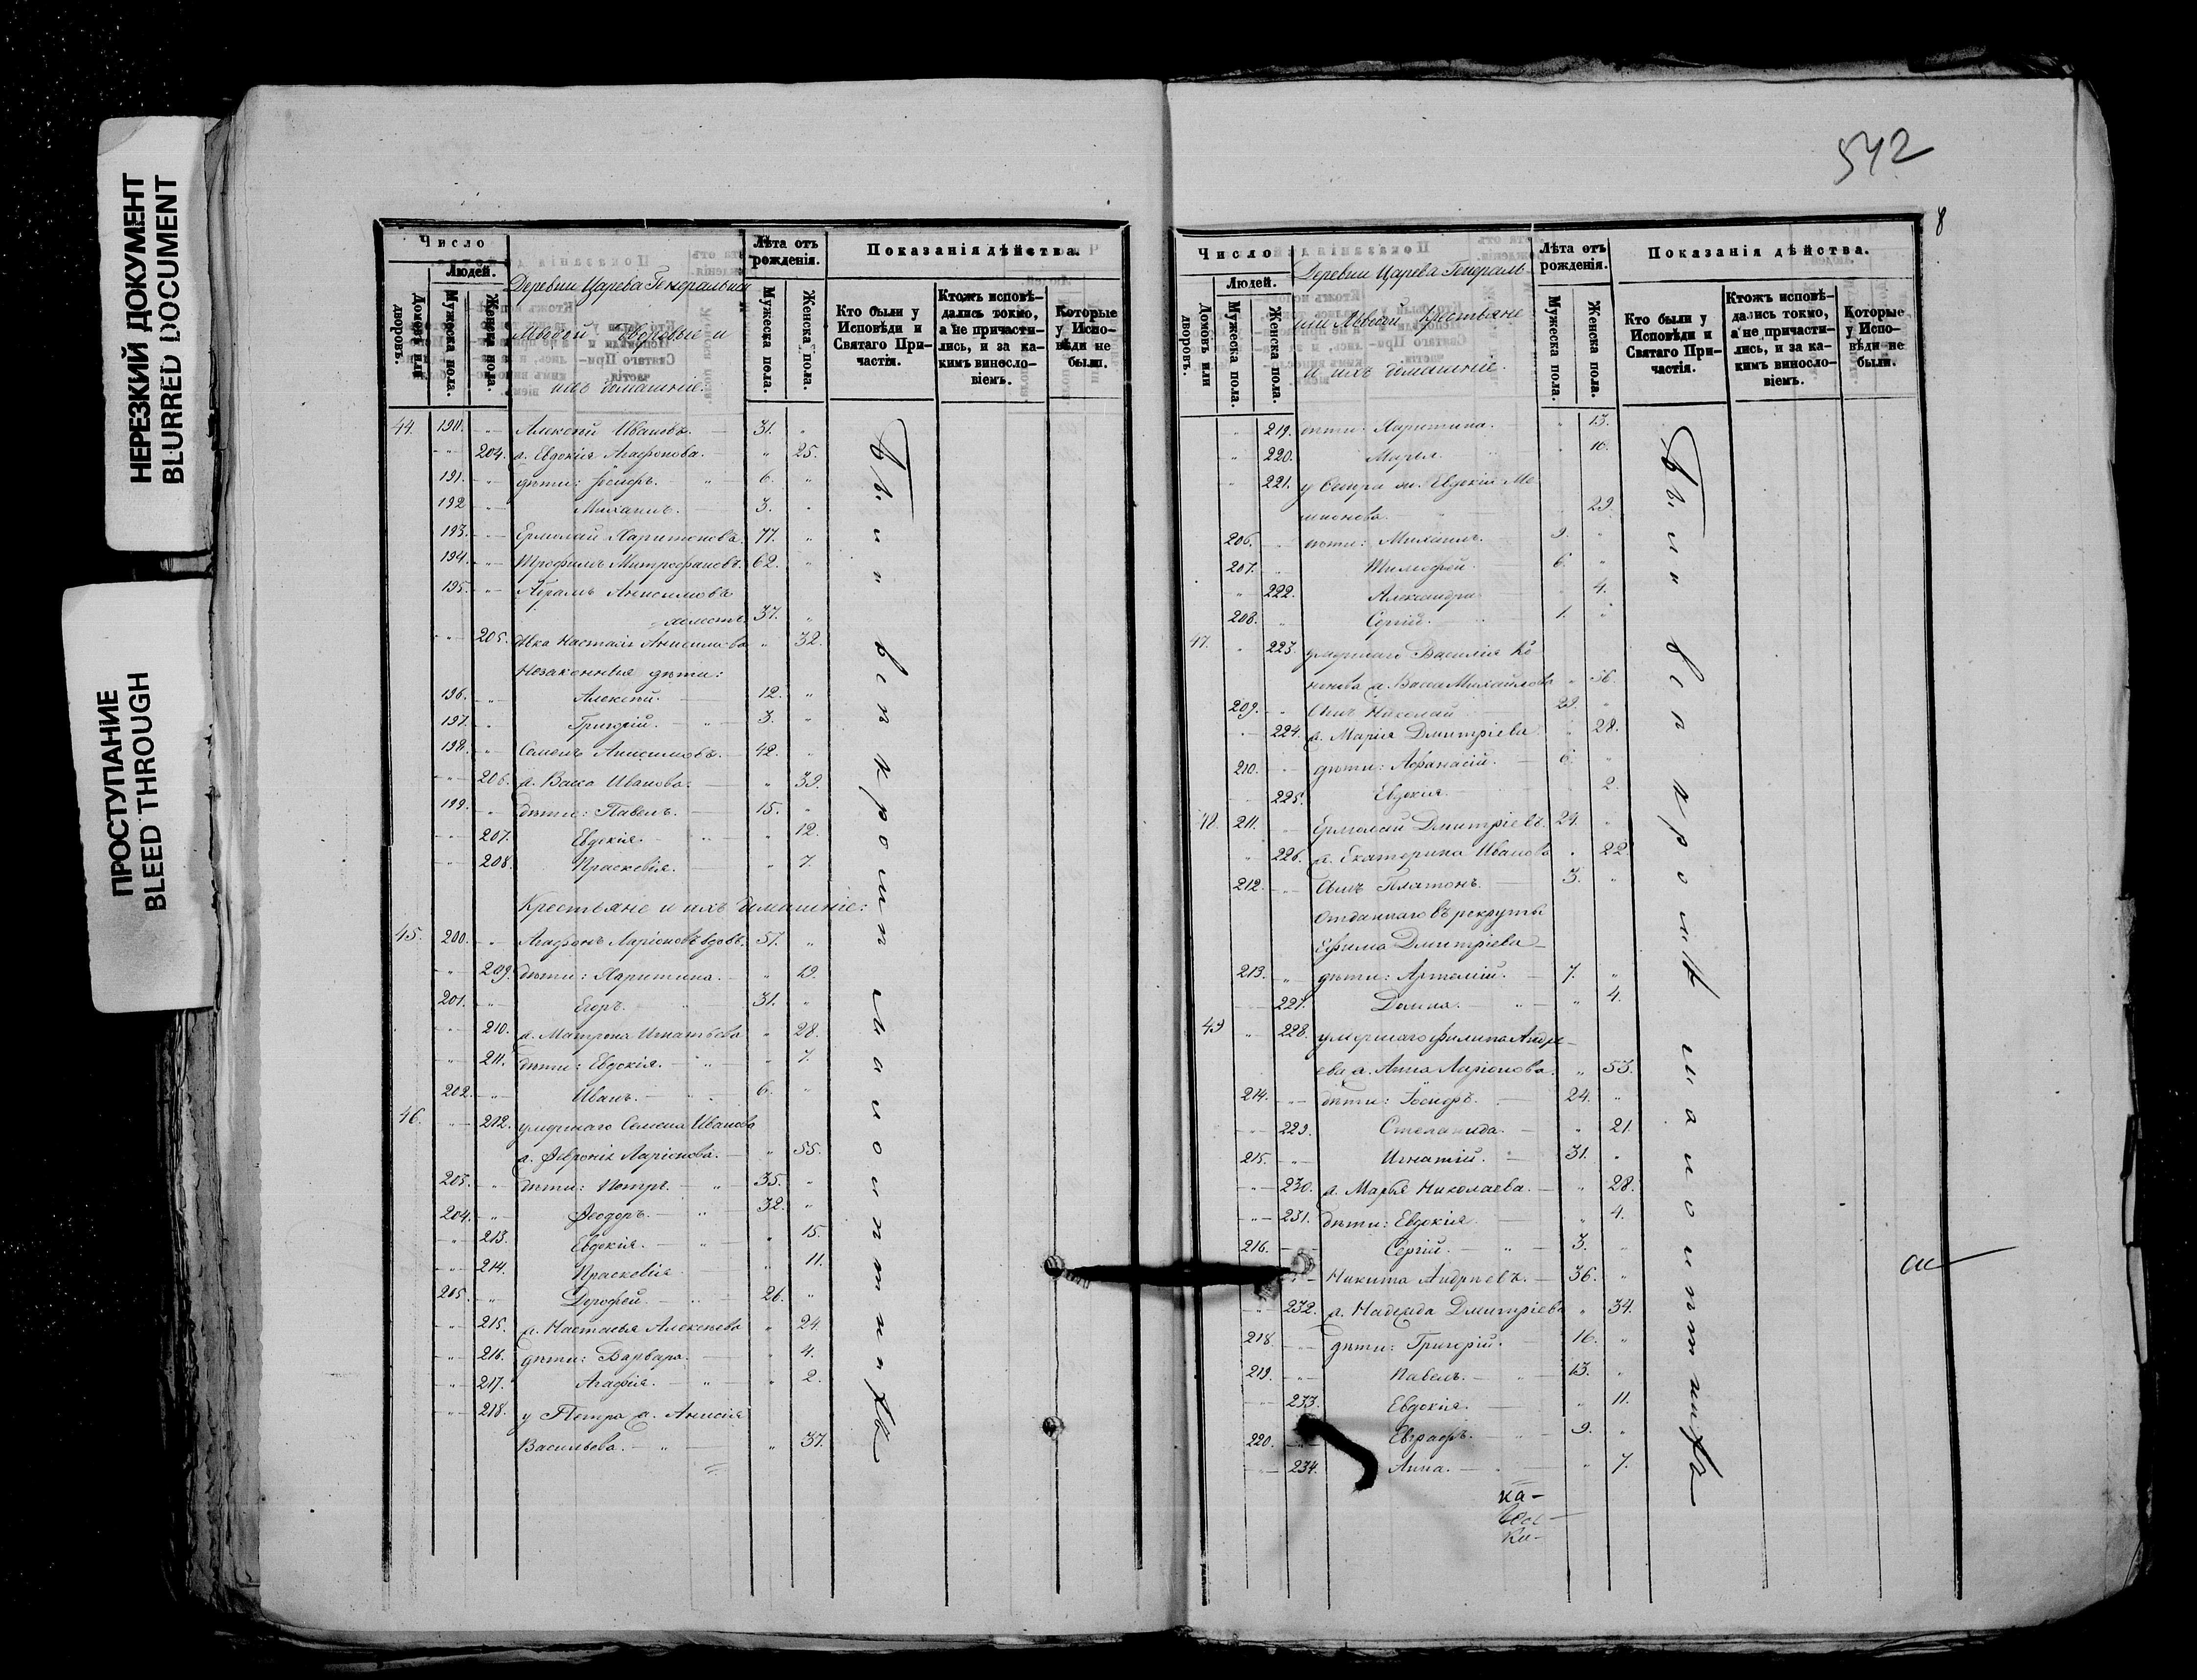 НЕРЕЗКИЙ ДОКУМЕНТ
BLURRED DOCUMENT
ПРОСТУПАНИЕ
BLEED THROUGH
Число
Людей.
Домовъ или дворовъ.
Мужеска пола.
Женска пола.
Деревни Царева
Дворовые и
ихъ домашніе.
Лѣта отъ рожденія.
Мужеска пола.
Женска пола.
Показанія дѣйства.
Кто были у Исповѣди и Святаго Причастія.
Ктожъ исповѣдались токмо, а не причастились, и за какимъ винословіемъ.
Которые у Исповѣди не были.
44. 190. Алексѣй Ивановъ. 31.
204. ж. Евдокія Агафонова. 25.
191. дѣти: Іосифъ. 6.
192. Михаилъ. 3.
193. Ермолай Харитоновъ. 77.
194. Трофимъ Митрофановъ. 62.
195. Абрамъ Анисимовъ
холостъ. 37.
205. дѣвка Настасья Анисимова 32.
Незаконныя дѣти:
196. Алексѣй. 12.
197. Григорій. 3.
198. Семенъ Анисимовъ. 42.
206. ж. Васса Иванова. 39.
199. дѣти: Павелъ. 15.
207. Евдокія. 12.
208. Прасковія. 7.
Крестьяне и ихъ домашніе:
45. 200. Агафонъ Ларіоновъ вдовъ. 57.
209. дѣти: Харитина. 19.
201. Егоръ. 31.
210. ж. Матрона Игнатьева 28.
211. дѣти: Евдокія. 7.
202. Иванъ. 6.
46. 212. умершаго Семена Иванова
ж. Февронія Ларіонова. 55.
203. дѣти: Петръ. 35.
204. Ѳеодоръ. 32.
213. Евдокія. 15.
214. Прасковія 11.
205. Дорофей. 26.
215. ж. Настасья Алексѣева 24.
216. дѣти: Варвара. 4.
217. Агафія. 2.
218. у Петра ж. Анисія
Васильева. 37.
Были всп
542
8
Число
Людей.
Домовъ или дворовъ.
Мужеска пола.
Женска пола.
Деревни Царева
Крестьяне
и ихъ домашніе.
Лѣта отъ рожденія.
Мужеска пола.
Женска пола.
Показанія дѣйства.
Кто были у Исповѣди и Святаго Причастія.
Ктожъ исповѣдались токмо, а не причастились, и за какимъ винословіемъ.
Которые у Исповѣди не были.
219. дѣти: Харитина. 13.
220. Марья 10.
221. Евдокія 29.
206. дѣти: Михаилъ. 9.
207. Тимофей. 6.
222. Александра 4.
208. Сергій. 1.
47. 223. умершаго Василія Ко-
нонова ж. Васса Михайлова 56.
209. сынъ Николай 29.
224. ж. Марія Дмитріева 28.
210. дѣти: Афанасій. 6.
225. Евдокія. 2.
48. 211. Ермолай Дмитріевъ. 24.
226. ж. Екатерина Иванова 22.
212. сынъ Платонъ. 3.
Отданнаго въ рекруты
Ефима Дмитріева
213. дѣти: Артемій. 7.
227. Домна. 4.
49 228. умершаго Филипа Андре-
ева ж. Анна Ларіонова. 53.
214. дѣти: Іосифъ. 24.
229. Степанида. 21.
215. Игнатій. 31.
230. ж. Марья Николаева. 28.
231. дѣти: Евдокія. 4.
216. Сергій. 3.
Никита Андреевъ. 36.
232. ж. Надежда Дмитріева 34.
218. дѣти: Григорій. 16.
219. Павелъ. 13.
233. Евдокія. 11.
220. Евграфъ. 9.
234. Анна. 7.